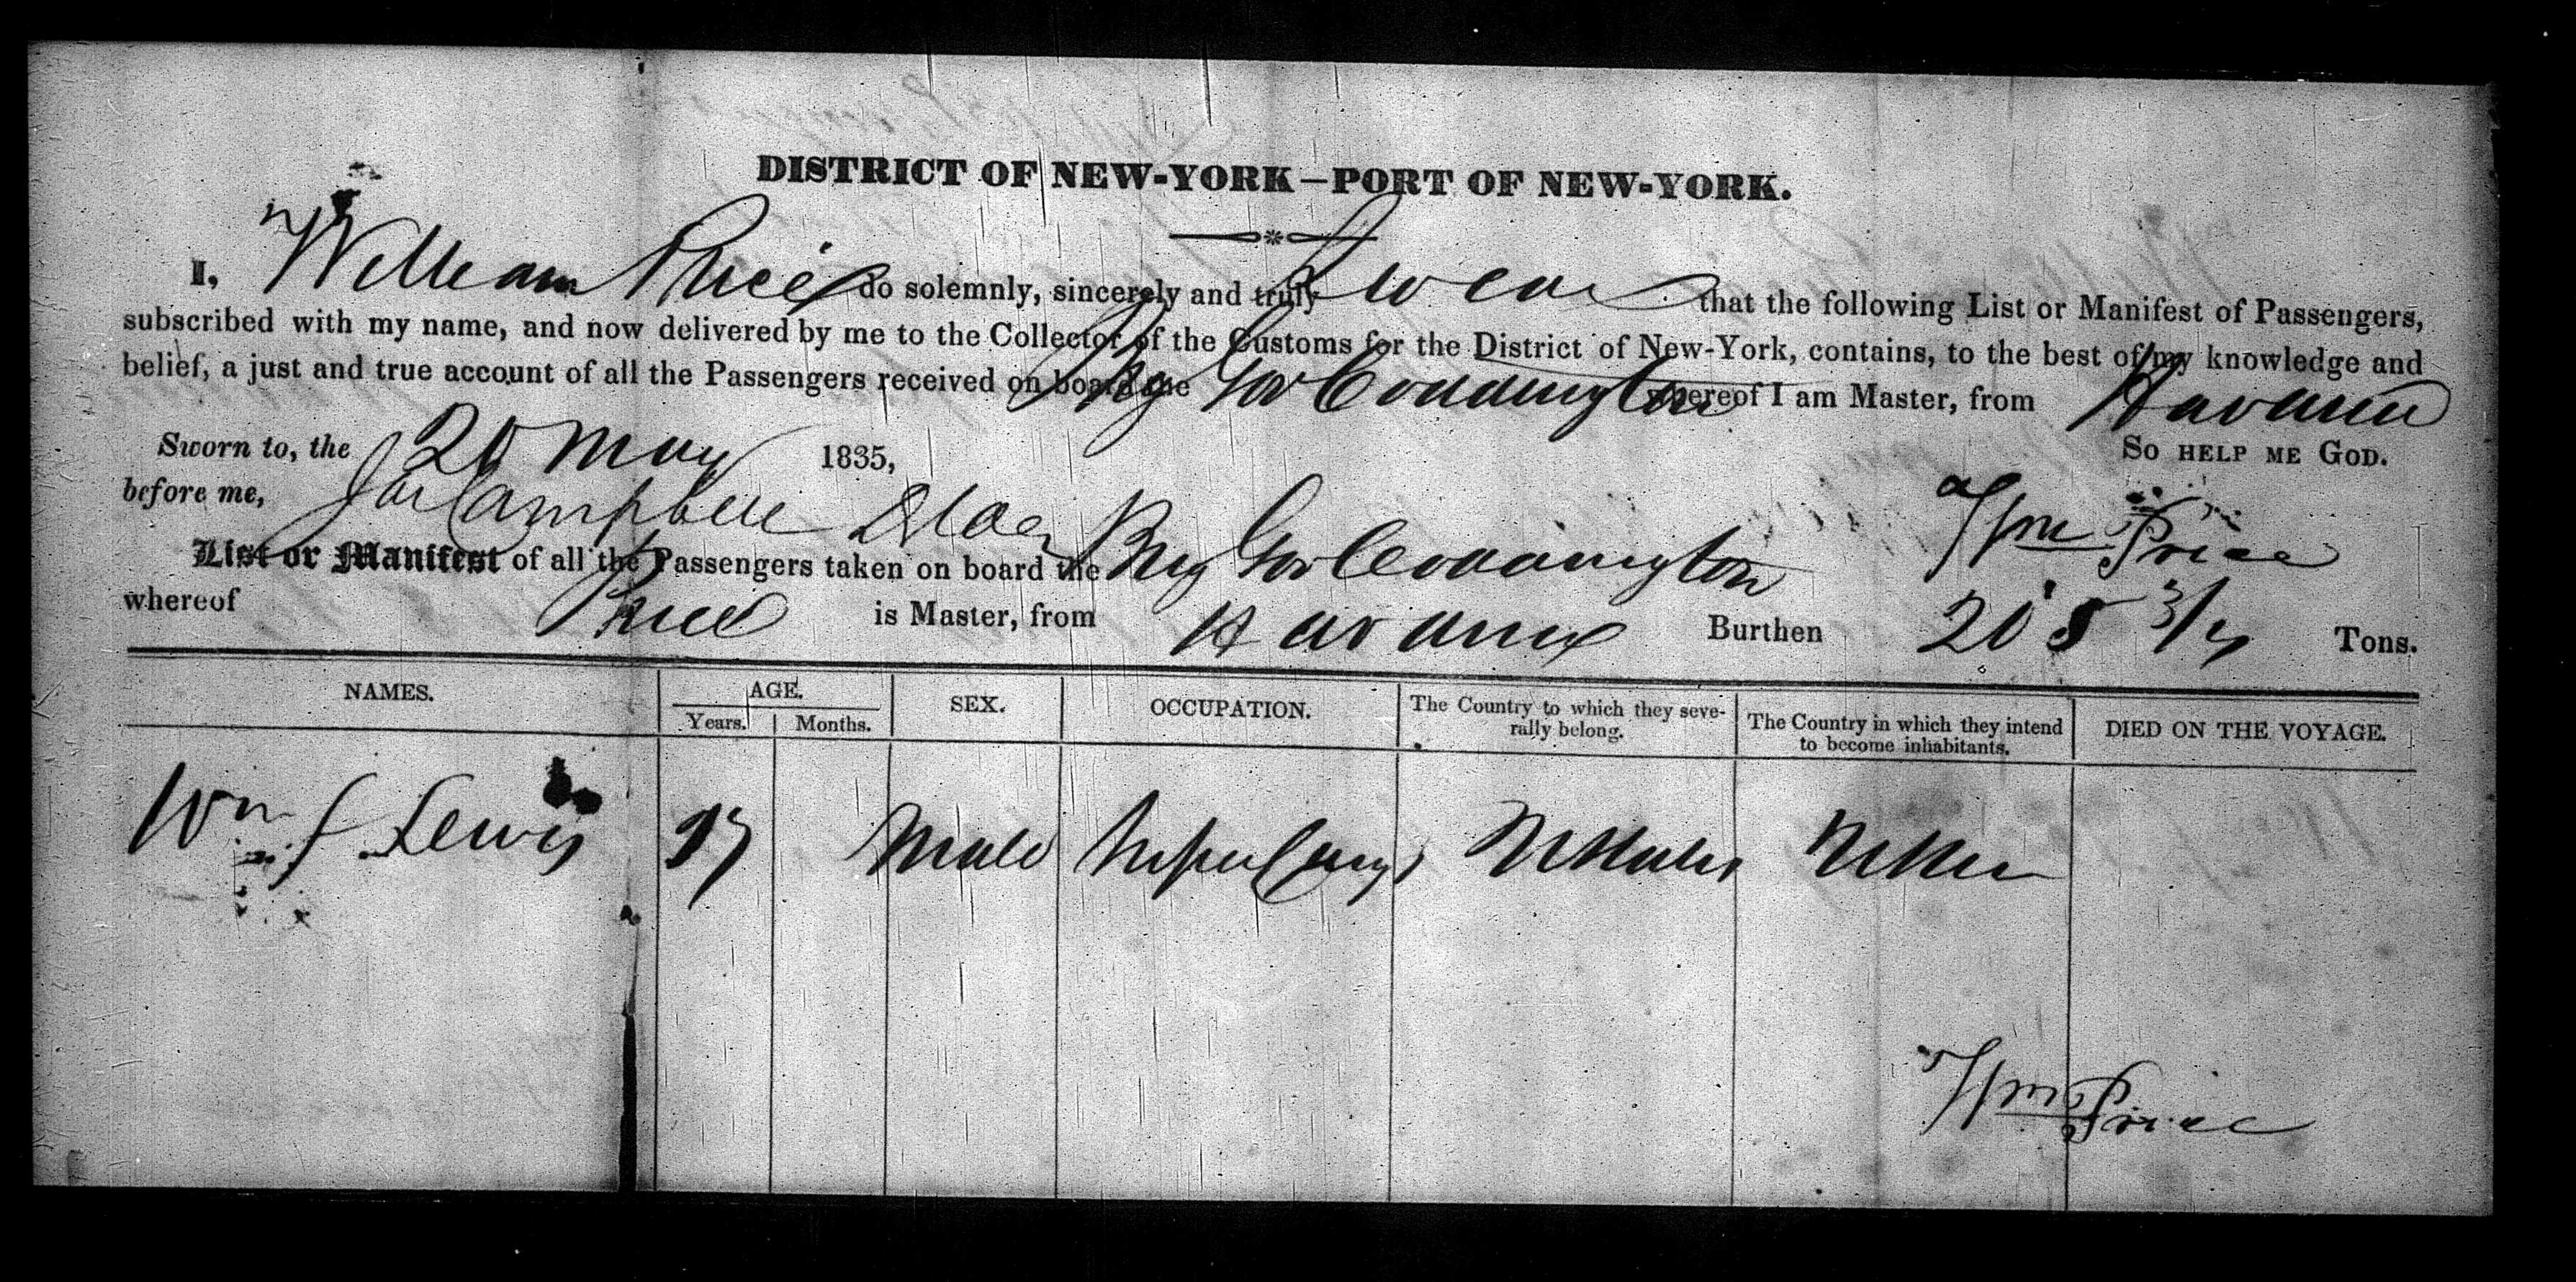 DISTRICT OF NEW-YORK—PORT OF NEW-YORK.
I, William Price do solemnly, sincerely and truly Swear that the following List or Manifest of Passengers,
subscribed with my name, and now delivered by me to the Collector of the Customs for the District of New-York, contains, to the best of my knowledge and
belief, a just and true account of all the Passengers received on board the Brig Gov Coddington whereof I am Master, from Havana
Sworn to, the 20 May 1835, So help me God.
before me, Campbell Wm Price
List or Manifest of all the Passengers taken on board the Brig Gov Coddington
whereof Price is Master, from Havana Burthen 205 Tons.
NAMES. AGE. SEX. OCCUPATION. The Country to which they severally belong. The Country in which they intend to become inhabitants. DIED ON THE VOYAGE.
Years. Months.
Wm Lewis Male
Wm Price